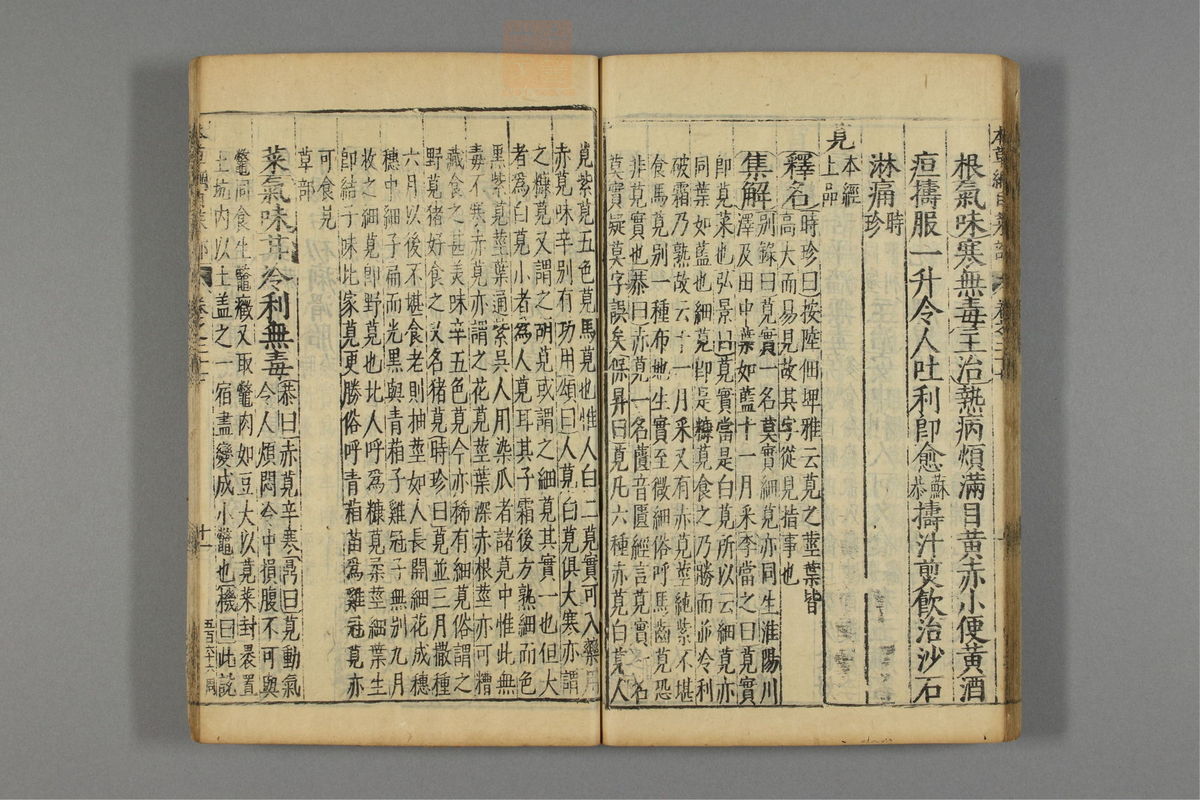 根氣味寒無毒主治熱病煩滿目黃赤小便黃酒
疸擣服一升令人吐利卽愈蘇恭擣汁煎飲治沙石
淋痛時珍
莧本經上品
釋名時珍曰按陸佃埤雅云莧之莖葉皆
高大而易見故其字從見指事也
集解別錄曰莧實一名莫實細莧亦同生淮陽川
澤及田中葉如藍十一月采李當之曰莧實
卽莧菜也弘景曰莧實當是白莧所以云細莧亦
同葉如藍也細莧卽是糠莧食之乃勝而並冷利
破霜乃熟故云十一月采又有赤莧莖純紫不堪
食馬莧別一種布地生實至微細俗呼馬齒莧恐
非莧實也恭曰赤莧一名蕢音匱經言莧實一名
莫實疑莫字誤矣保昇曰莧凡六種赤莧白莧人
莧紫莧五色莧馬莧也惟人白二莧實可入藥用
赤莧味辛別有功用頌曰人莧白莧俱大寒亦謂
之糠莧又謂之胡莧或謂之細莧其實一也但大
者爲白莧小者爲人莧耳其子霜後方熟細而色
黑紫莧莖葉通紫吳人用染瓜者諸莧中惟此無
毒不寒赤莧亦謂之花莧莖葉深赤根莖亦可糟
藏食之甚美味辛五色莧今亦稀有細莧俗謂之
野莧猪好食之又名猪莧時珍曰莧並三月撒種
六月以後不堪食老則抽莖如人長開細花成穗
穗中細子扁而光黑與青葙子雞冠子無別九月
收之細莧卽野莧也北人呼爲糠莧柔莖細葉生
卽結子味比家莧更勝俗呼青葙苗爲雞冠莧亦
可食莧
草部
菜氣味甘冷利無毒恭曰赤莧辛寒鼎曰莧動氣
令人煩悶冷中損腹不可與
鼈同食生鼈癥又取鼈肉如豆大以莧菜封裹置
土坑內以土盖之一宿盡變成小鼈也機曰此說
十一
五百六十六周